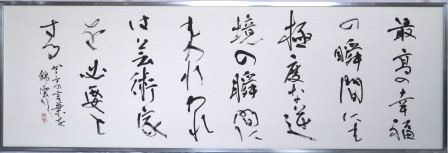 最高の幸福
の瞬間にも
極度な逆
境の瞬間に
もわれわれ
は芸術家
を必要と
する
ゲーテの言葉を